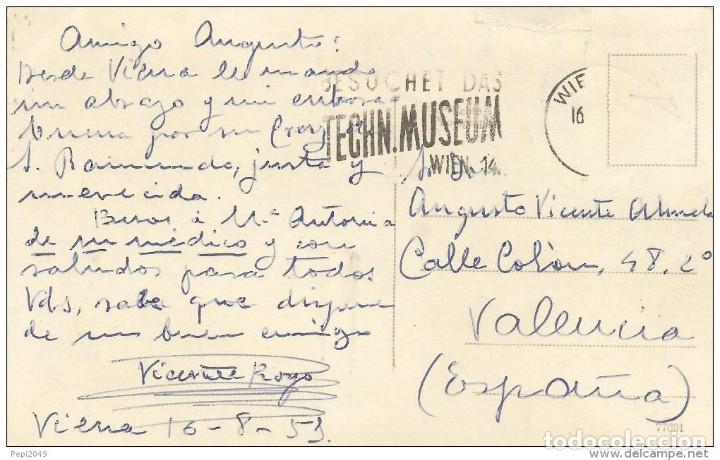 Amigo Augusto:
Desde Viena le mando
un abrazo y mi enhora-
buena por su Cruz de
S. Raimundo, justa y
merecida.
Besos á Mª Antonia
de su médico y con
saludos para todos
Vds, sabe que dispone
de un buen amigo
Vicente Royo
Viena 16-8-53
BESUCHET DAS
TECHN. MUSEUM
WIEN 14.
WIE
16
Augusto Vicente
Calle Colón, 48. 2º
Valencia
(España)
77031
Pepi2049
todocoleccion